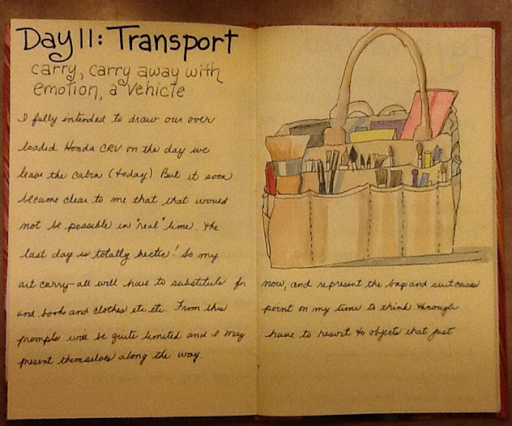 Day 11: Transport
carry, carry away with
emotion, a vehicle
I fully intended to draw our over
loaded Honda CRV on the day we
leave the Cabin (today) But it soon
became clear to me that that would
not be possible in "real" time. The
last day is totally hectic! So my
art carry-all will have to substitute for
now, and represent the bag and suitcases
and books and clothes etc etc. From this
point on my time to think through
prompts will be quite limited and I may
have to resort to objects that just
present themselves along the way.